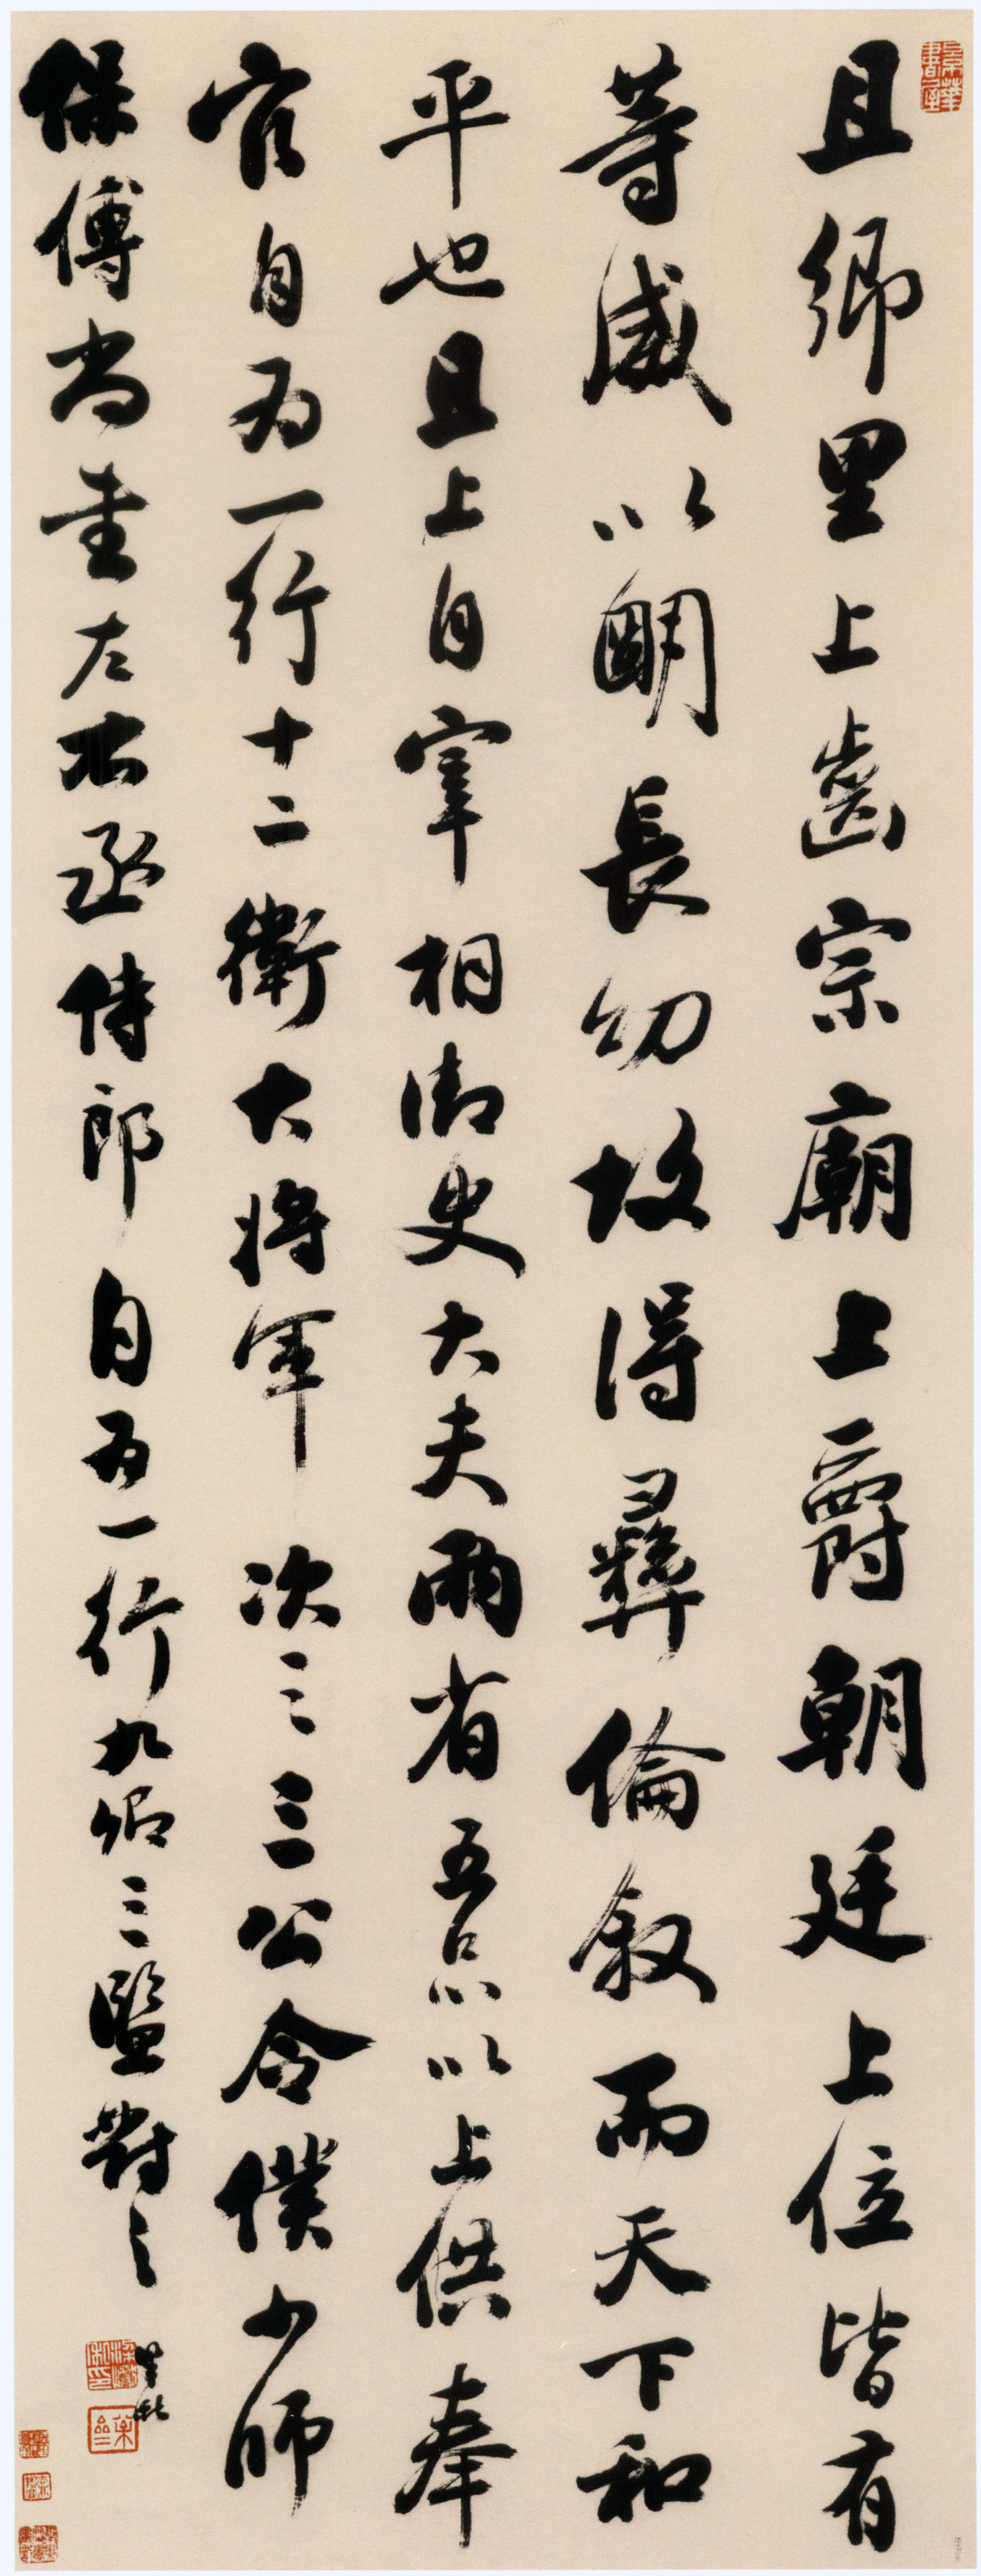 且鄉里上齒宗廟上爵朝廷上位皆有
等威以明長幼故得彝倫叙而天下和
平也且上自宰相御史大夫兩省五品以上供奉
官自為一行十二衛大將軍次之三公令僕少師
保傅尚書左右丞侍郎自為一行九卿三監對之